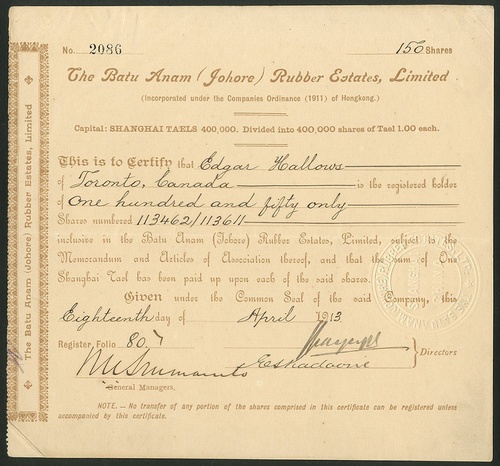 No. 2086 150 Shares
The Batu Anam (Johore) Rubber Estates, Limited.
(Incorporated under the Companies Ordinance (1911) of Hongkong.)
Capital: SHANGHAI TAELS 400,000. Divided into 400,000 shares of Tael 1.00 each.
This is to Certify that Edgar Hallows
of Toronto, Canada is the registered holder
of One hundred and fifty only
Shares numbered 113462/113611
inclusive in the Batu Anam (Johore) Rubber Estates, Limited, subject to the
Memorandum and Articles of Association thereof, and that the sum of One
Shanghai Tael has been paid up upon each of the said shares.
Given under the Common Seal of the said Company, this
Eighteenth day of April 1913
Register, Folio 80
Directors
General Managers,
NOTE. — No transfer of any portion of the shares comprised in this certificate can be registered unless
accompanied by this certificate.
The Batu Anam (Johore) Rubber Estates, Limited